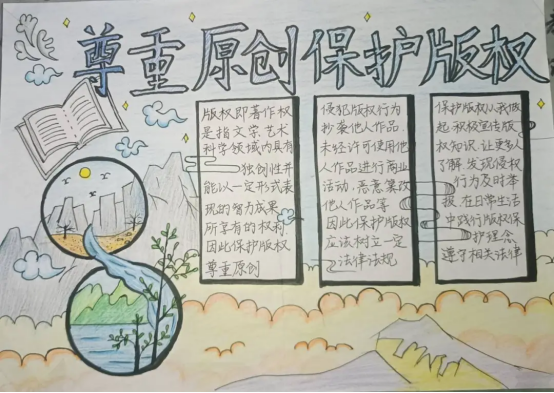 尊重原创保护版权
版权即著作权
是指文学.艺术
科学领域内具有
独创性并
能以一定形式表
现的智力成果
所享有的权利.
因此保护版权
尊重原创
侵犯版权行为
抄袭他人作品.
未经许可使用他
人作品进行商业
活动.恶意篡改
他人作品等
因此保护版权
应该树立一定
法律法规
保护版权从我做
起.积极宣传版
权知识.让更多人
了解.发现侵权
行为及时举
报.在日常生活
中践行版权保
护理念.
遵守相关法律